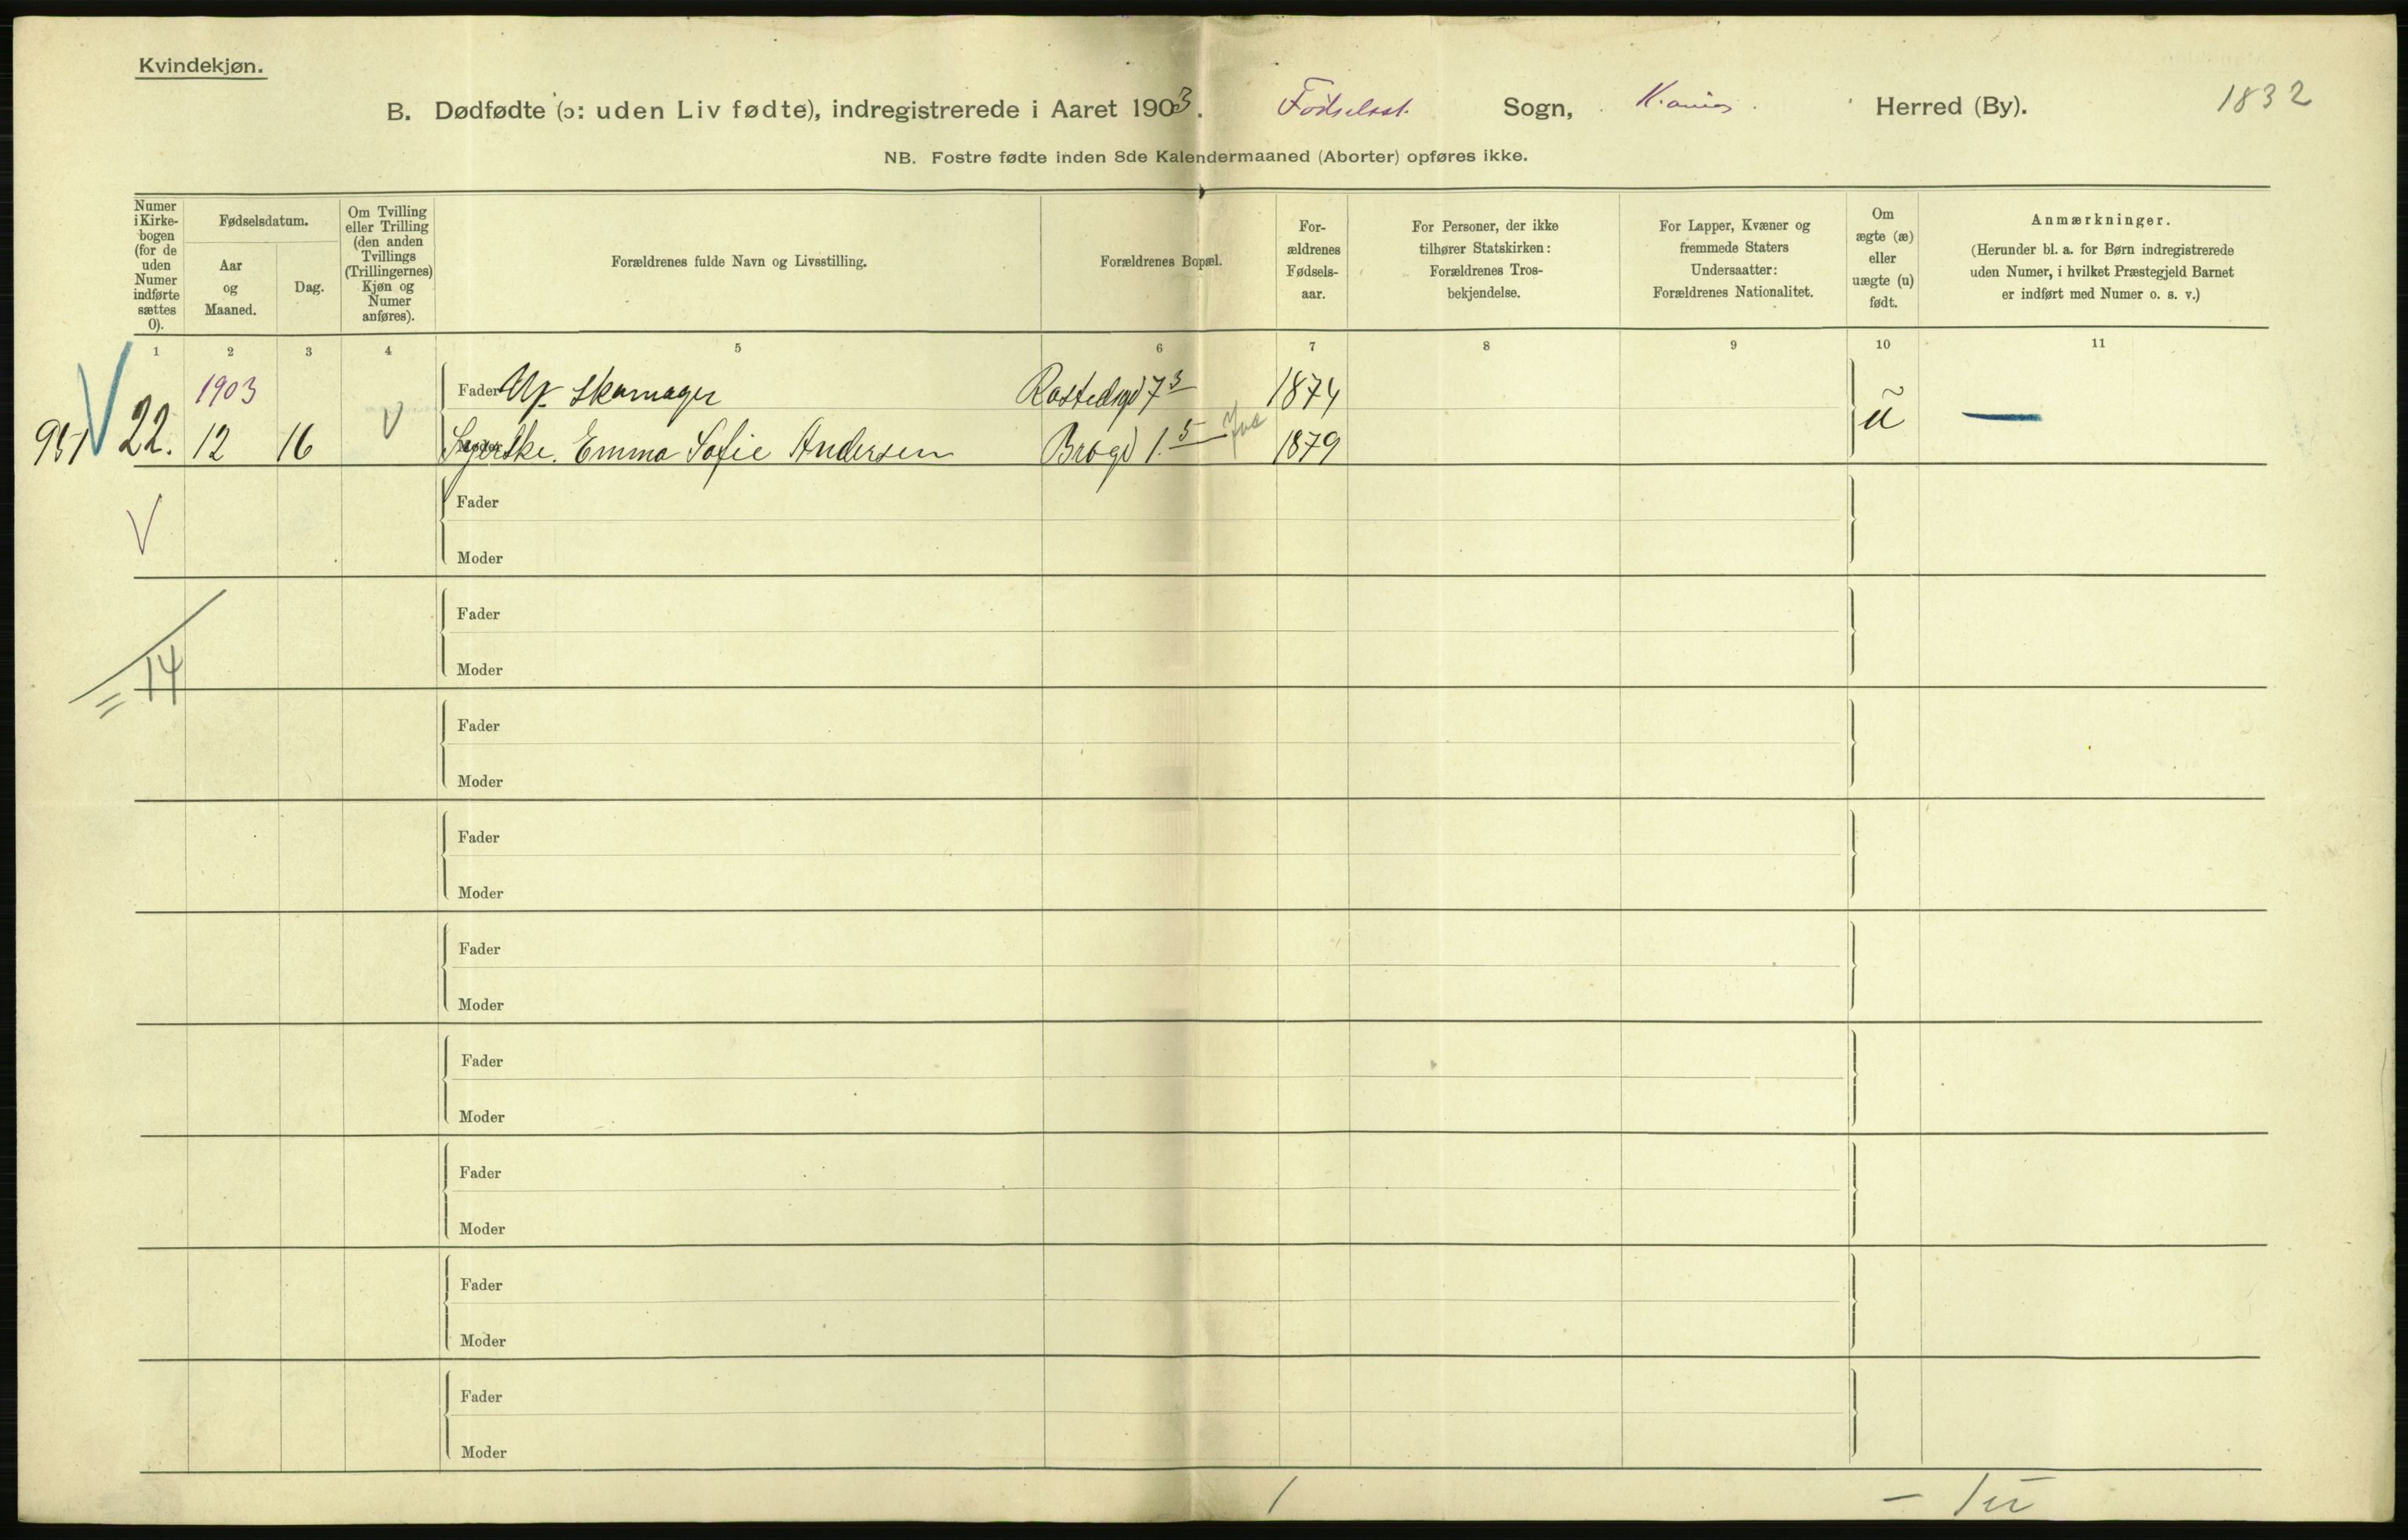 Kvindekjøn.
B. Dødfødte (ɔ: uden Liv fødte), indregistrerede i Aaret 1903. Fødselsst. Sogn, K.ania. Herred (By). 1832
NB. Fostre fødte inden 8de Kalendermaaned (Aborter) opføres ikke.
Numer i Kirke-bogen (for de uden Numer indførte sættes 0).
Fødselsdatum.
Aar og Maaned.
Dag.
Om Tvilling eller Trilling (den anden Tvillings (Trillingernes) Kjøn og Numer anføres).
Forældrenes fulde Navn og Livsstilling.
Forældrenes Bopæl.
For-ældrenes Fødsels-aar.
For Personer, der ikke tilhører Statskirken: Forældrenes Tros-bekjendelse.
For Lapper, Kvæner og fremmede Staters Undersaatter: Forældrenes Nationalitet.
Om ægte (æ) eller uægte (u) født.
Anmærkninger.
(Herunder bl. a. for Børn indregistrerede uden Numer, i hvilket Præstegjeld Barnet er indført med Numer o. s. v.)
1 2 3 4 5 6 7 8 9 10 11
1903 Fader skomager Rostedsgd 7 3 1874
951 22. 12 16 V Syerske. Emma Sofie Andersen Brogd 1. 5 1879 u —
V Fader
Moder
Fader
14 Moder
Fader
Moder
Fader
Moder
Fader
Moder
Fader
Moder
Fader
Moder
Fader
Moder
Fader
Moder
1 – 1u